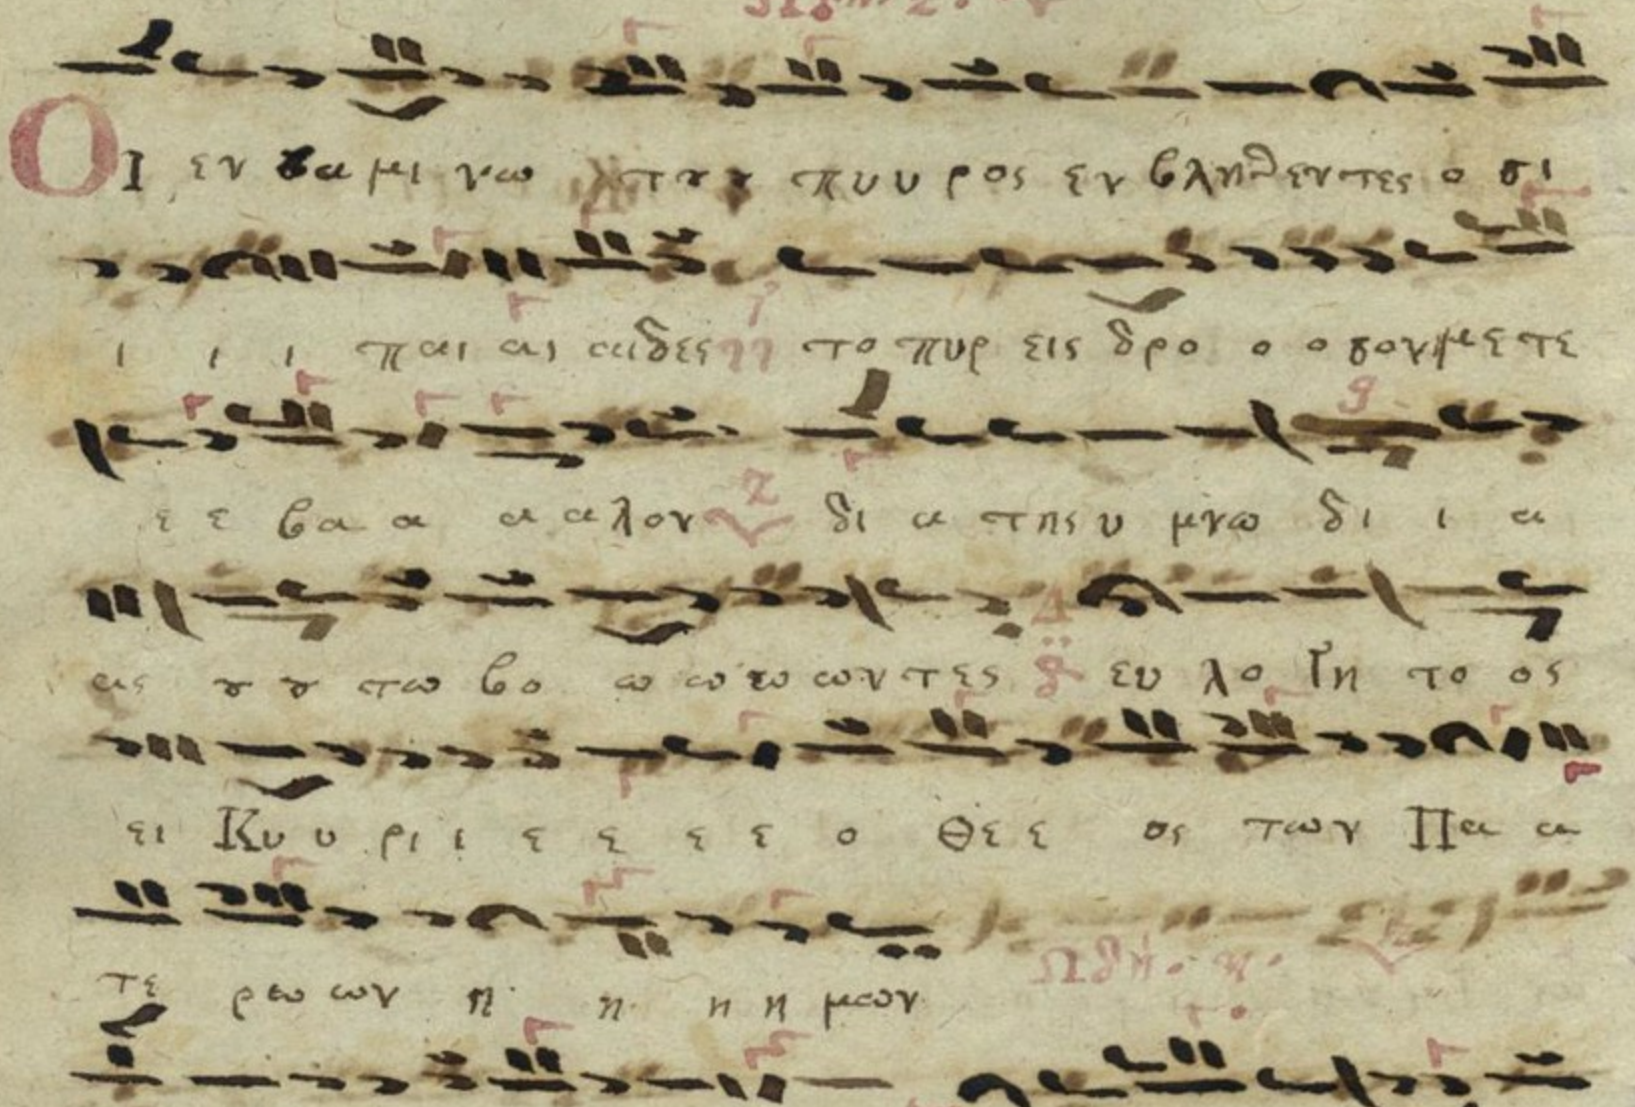 Ωδη ζ.
Οι εν καμι νω του πυυρος εν βληθεντες ο σι
ι ι ι παι αι αιδες το πυρ εις δρο ο ο σον με τε
ε ε βα α α αλον δι α της υ μνω δι ι α
ας ου ου τω βο ω ω ω ωντες ευ λο γη το ος
ει Κυ υ ρι ι ε ε ε ε ο Θε ε ος των Πα α
τε ρω ων η η η η μων
Ωδη. η.